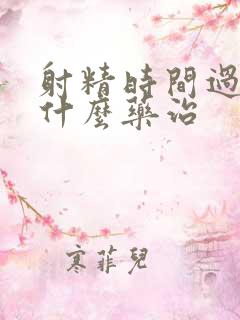 射精時間過
什麼藥治
寒菲兒